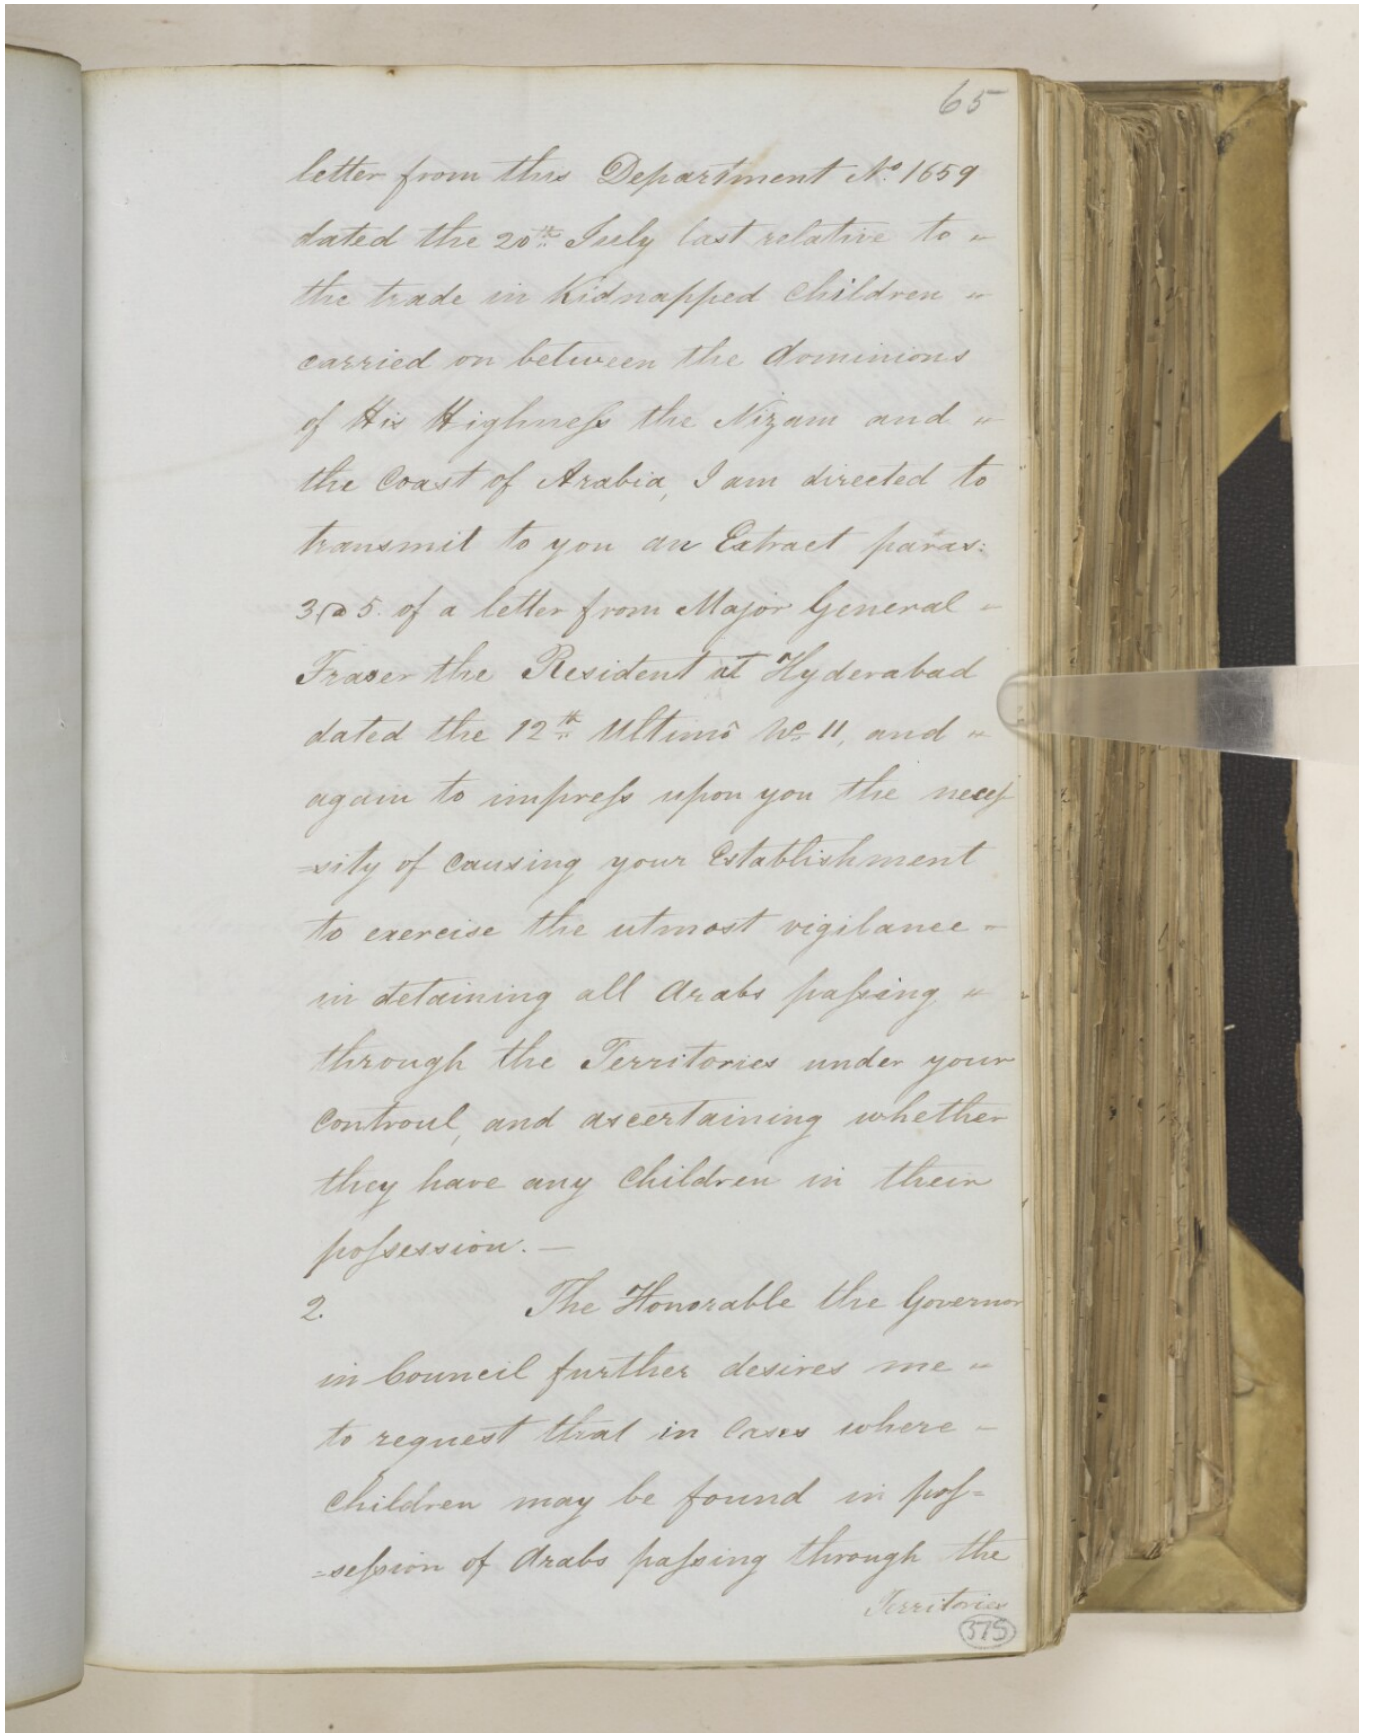 65
letter from this Department No. 1659
dated the 20th July last relative to "
the trade in Kidnapped Children "
carried on between the dominions
of His Highneſs the Nizam and "
the Coast of Arabia, I am directed to
transmit to you an Extract paras:
3 @ 5. of a letter from Major General -
Fraser the Resident at Hyderabad
dated the 12th Ultimo No 11, and "
again to impreſs upon you the neceſ
=sity of causing your Establishment
to exercise the utmost vigilance -
in detaining all Arabs paſsing "
through the Territories under your
controul, and ascertaining whether
they have any Children in their
poſsession. —
2. The Honorable the Governor
in Council further desires me "
to request that in Cases where -
Children may be found in poſ=
=seſsion of Arabs paſsing through the
Territories
375